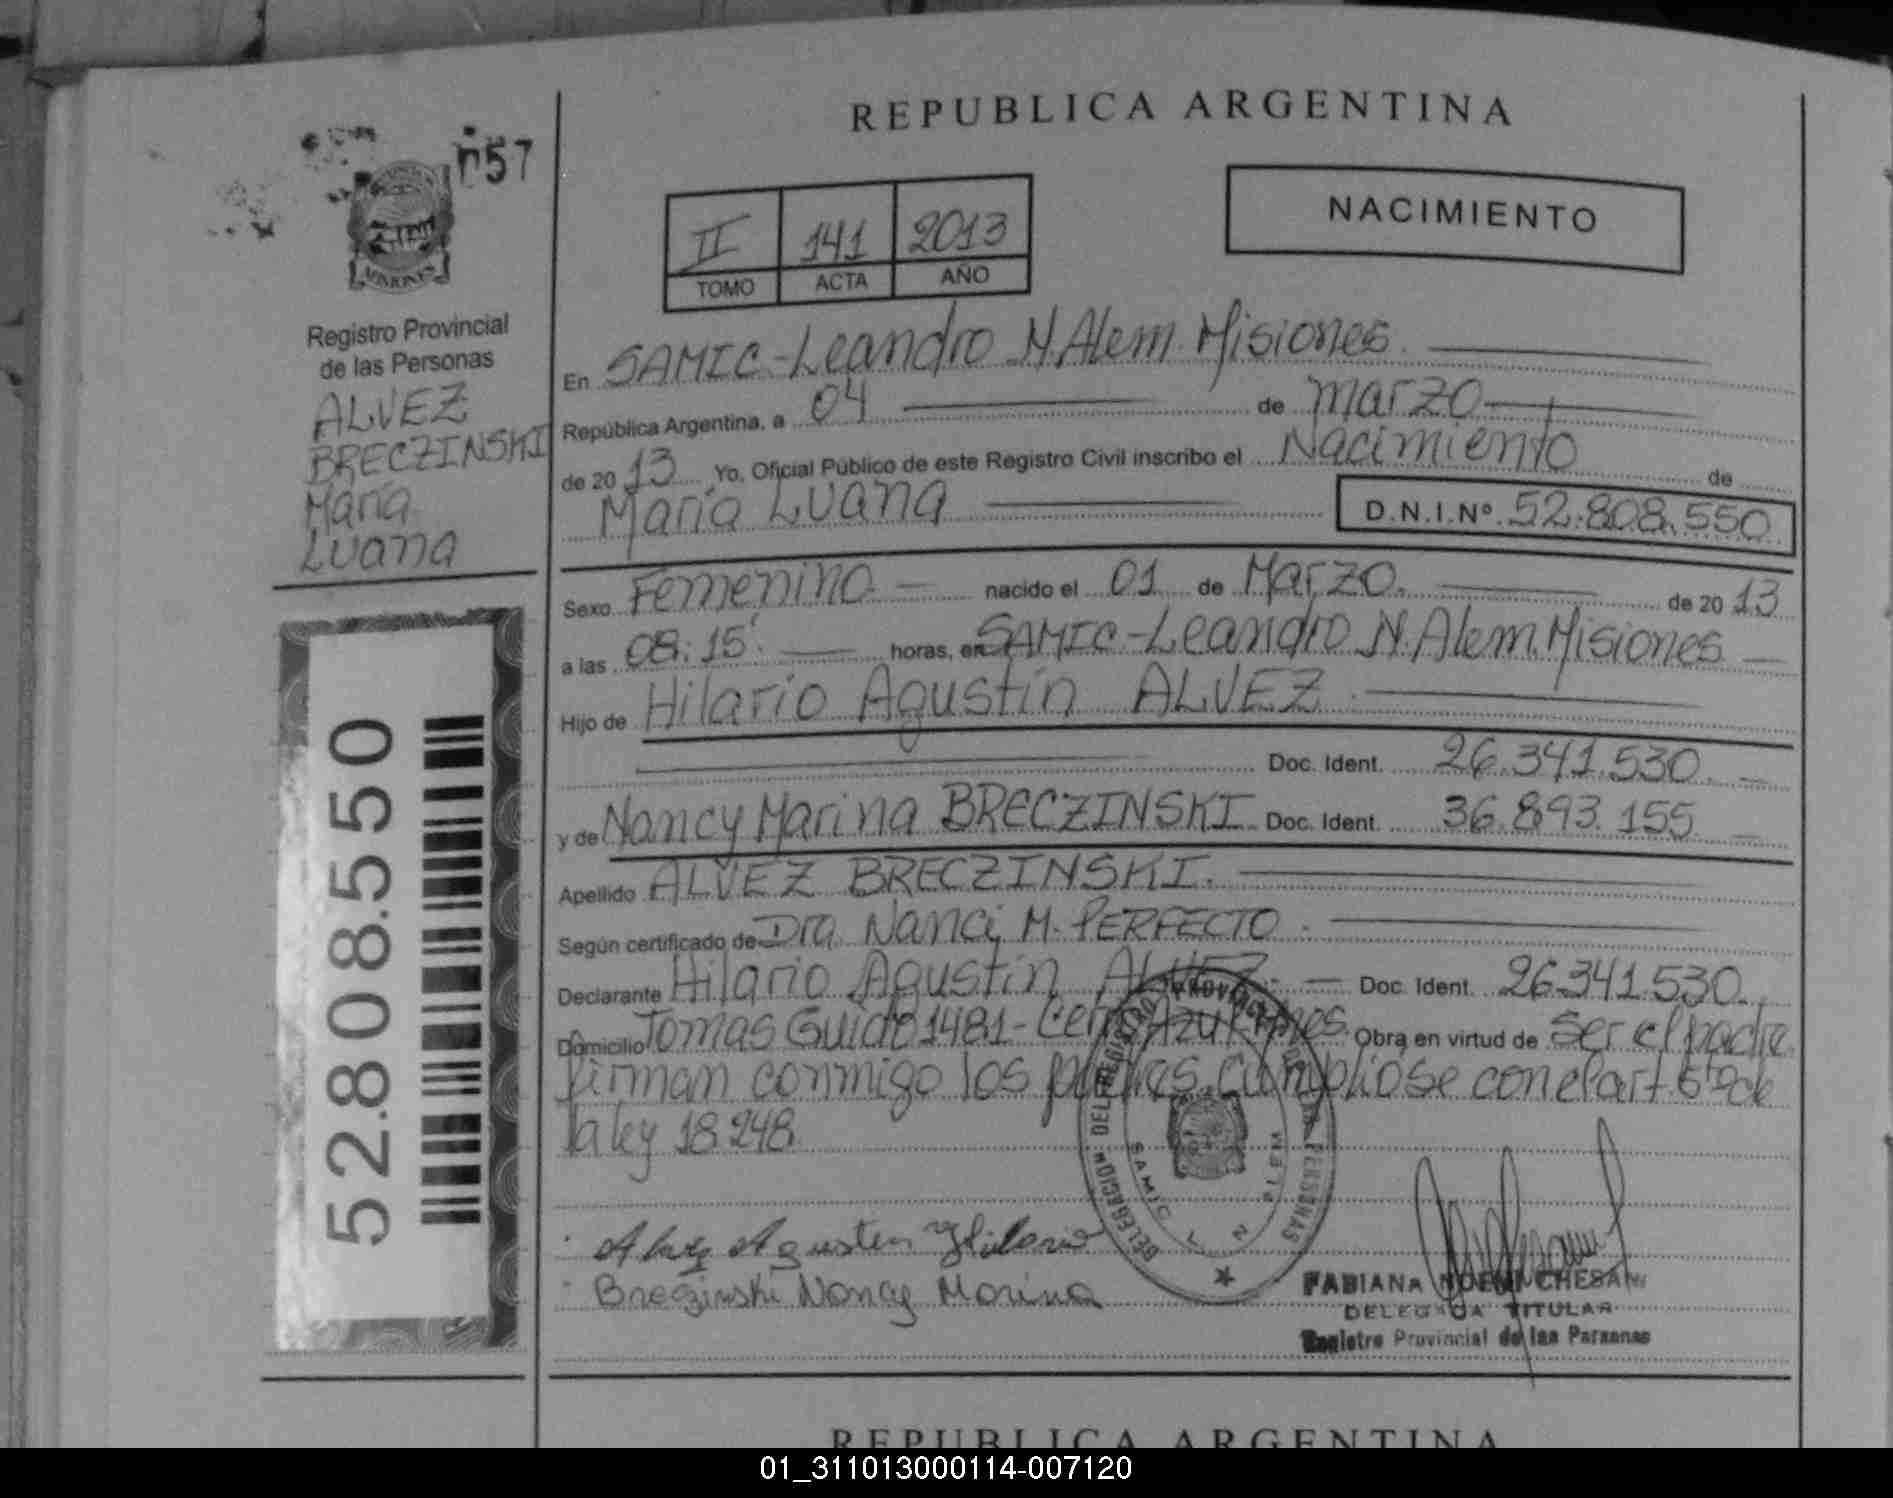 REPUBLICA ARGENTINA
057
NACIMIENTO
II 141 2013
TOMO ACTA AÑO
MISIONES
Registro Provincial
de las Personas
ALVEZ
BRECZINSKI
María
Luana
En SAMIC-Leandro N. Alem. Misiones.
República Argentina, a 04 de marzo
de 20 13 Yo, Oficial Público de este Registro Civil inscribo el Nacimiento de
María Luana D.N.I.Nº 52.808.550
Sexo Femenino nacido el 01 de Marzo. de 20 13
a las 08:15' horas, en SAMIC-Leandro N. Alem. Misiones
Hijo de Hilario Agustín ALVEZ
Doc. Ident. 26.341.530.
y de Nancy Marina BRECZINSKI Doc. Ident. 36.893.155
Apellido ALVEZ BRECZINSKI.
Según certificado de Dra. Nanci M. PERFECTO.
Declarante Hilario Agustín ALVEZ. Doc. Ident. 26.341.530.
Domicilio Tomas Guido 1481-Cerro Azul Mnes. Obra en virtud de Ser el padre
firman conmigo los padres. Cumplióse con el art. 5to de
la ley 18.248.
52.808.550
DELEGACION DEL REGISTRO PROVINCIAL DE LAS PERSONAS
SAMIC L N ALEM
Alvez Agusten Hilario
Breczinski Nancy Marina
FABIANA NOEMI CHESANI
DELEGADA TITULAR
Registro Provincial de las Personas
REPUBLICA ARGENTINA
01_311013000114-007120